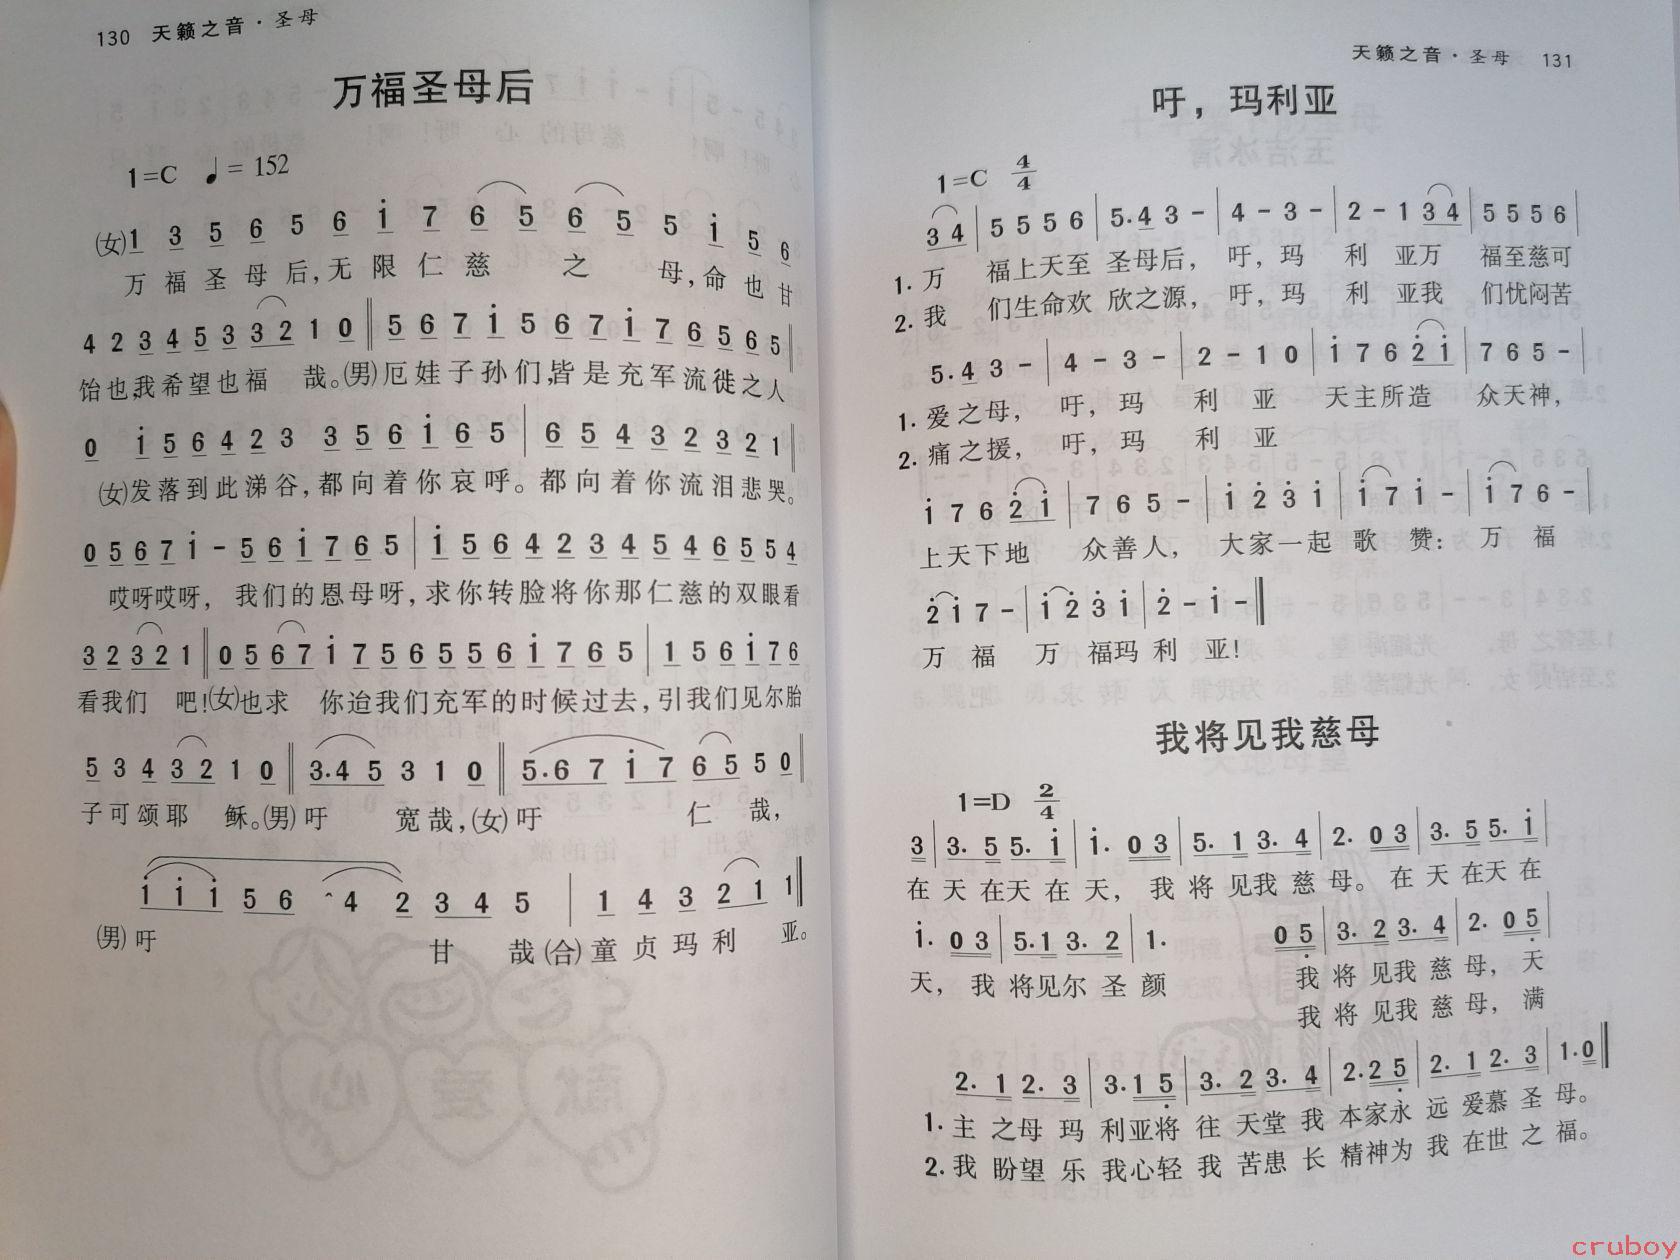 130 天籁之音·圣母
万福圣母后
1=C ♩= 152
(女)1 3 5 6 5 6 i 7 6 5 6 5 5 i 5 6
万福圣母后,无限仁慈 之 母,命也甘
4 2 3 4 5 3 3 2 1 0 ‖ 5 6 7 i 5 6 7 i 7 6 5 6 5 ‖
饴也,我希望也福 哉。(男)厄娃子孙们,皆是充军流徙之人
0 i 5 6 4 2 3 3 5 6 i 6 5 | 6 5 4 3 2 2 3 2 1 ‖
(女)发落到此涕谷,都向着你哀呼。都向着你流泪悲哭。
0 5 6 7 i - 5 6 i 7 6 5 | i 5 6 4 2 3 4 5 4 6 5 5 4
哎呀哎呀, 我们的恩母呀,求你转脸将你那仁慈的双眼看
3 2 3 2 1 ‖ 0 5 6 7 i 7 5 6 5 5 6 i 7 6 5 | 1 5 6 i 7 6
看我们 吧!(女)也求 你迨我们充军的时候过去,引我们见尔胎
5 3 4 3 2 1 0 ‖ 3·4 5 3 1 0 ‖ 5·6 7 i 7 6 5 5 0 ‖
子可颂耶 稣。(男)吁 宽哉,(女)吁 仁 哉,
i i i 5 6 4 2 3 4 5 | 1 4 3 2 1 1 ‖
(男)吁 甘 哉(合)童贞玛利 亚。
天籁之音·圣母 131
吁,玛利亚
1=C 4/4
3 4 | 5 5 5 6 | 5·4 3 - | 4 - 3 - | 2 - 1 3 4 | 5 5 5 6 |
1. 万 福上天至 圣母后, 吁,玛 利 亚万 福至慈可
2. 我 们生命欢 欣之源, 吁,玛 利 亚我 们忧闷苦
5·4 3 - | 4 - 3 - | 2 - 1 0 | i 7 6 2̇ i | 7 6 5 - |
1. 爱之母, 吁,玛 利 亚 天主所造 众天神,
2. 痛之援, 吁,玛 利 亚
i 7 6 2̇ i | 7 6 5 - | i 2̇ 3̇ i | i 7 i - | i 7 6 - |
上天下地 众善人, 大家一起 歌 赞: 万 福
2̇ i 7 - | i 2̇ 3̇ i | 2̇ - i - ‖
万 福 万 福玛 利 亚!
我将见我慈母
1=D 2/4
3 | 3· 5 5· i | i· 0 3 | 5· 1 3· 4 | 2· 0 3 | 3· 5 5· i |
在 天 在天 在 天, 我 将 见我 慈 母。 在 天 在天 在
i· 0 3 | 5·1 3· 2 | 1· 0 5̣ | 3· 2 3· 4 | 2· 0 5̣ |
天, 我 将见尔 圣 颜 我 将 见我 慈 母, 天
我 将 见我 慈 母, 满
2· 1 2· 3 | 3·1 5̣ | 3· 2 3· 4 | 2·2 5̣ | 2· 1 2· 3 | 1·0 ‖
1. 主 之母 玛 利亚将 往 天堂 我 本家永 远 爱慕 圣 母。
2. 我 盼望 乐 我心轻 我 苦患 长 精神为 我 在世 之 福。
cruboy